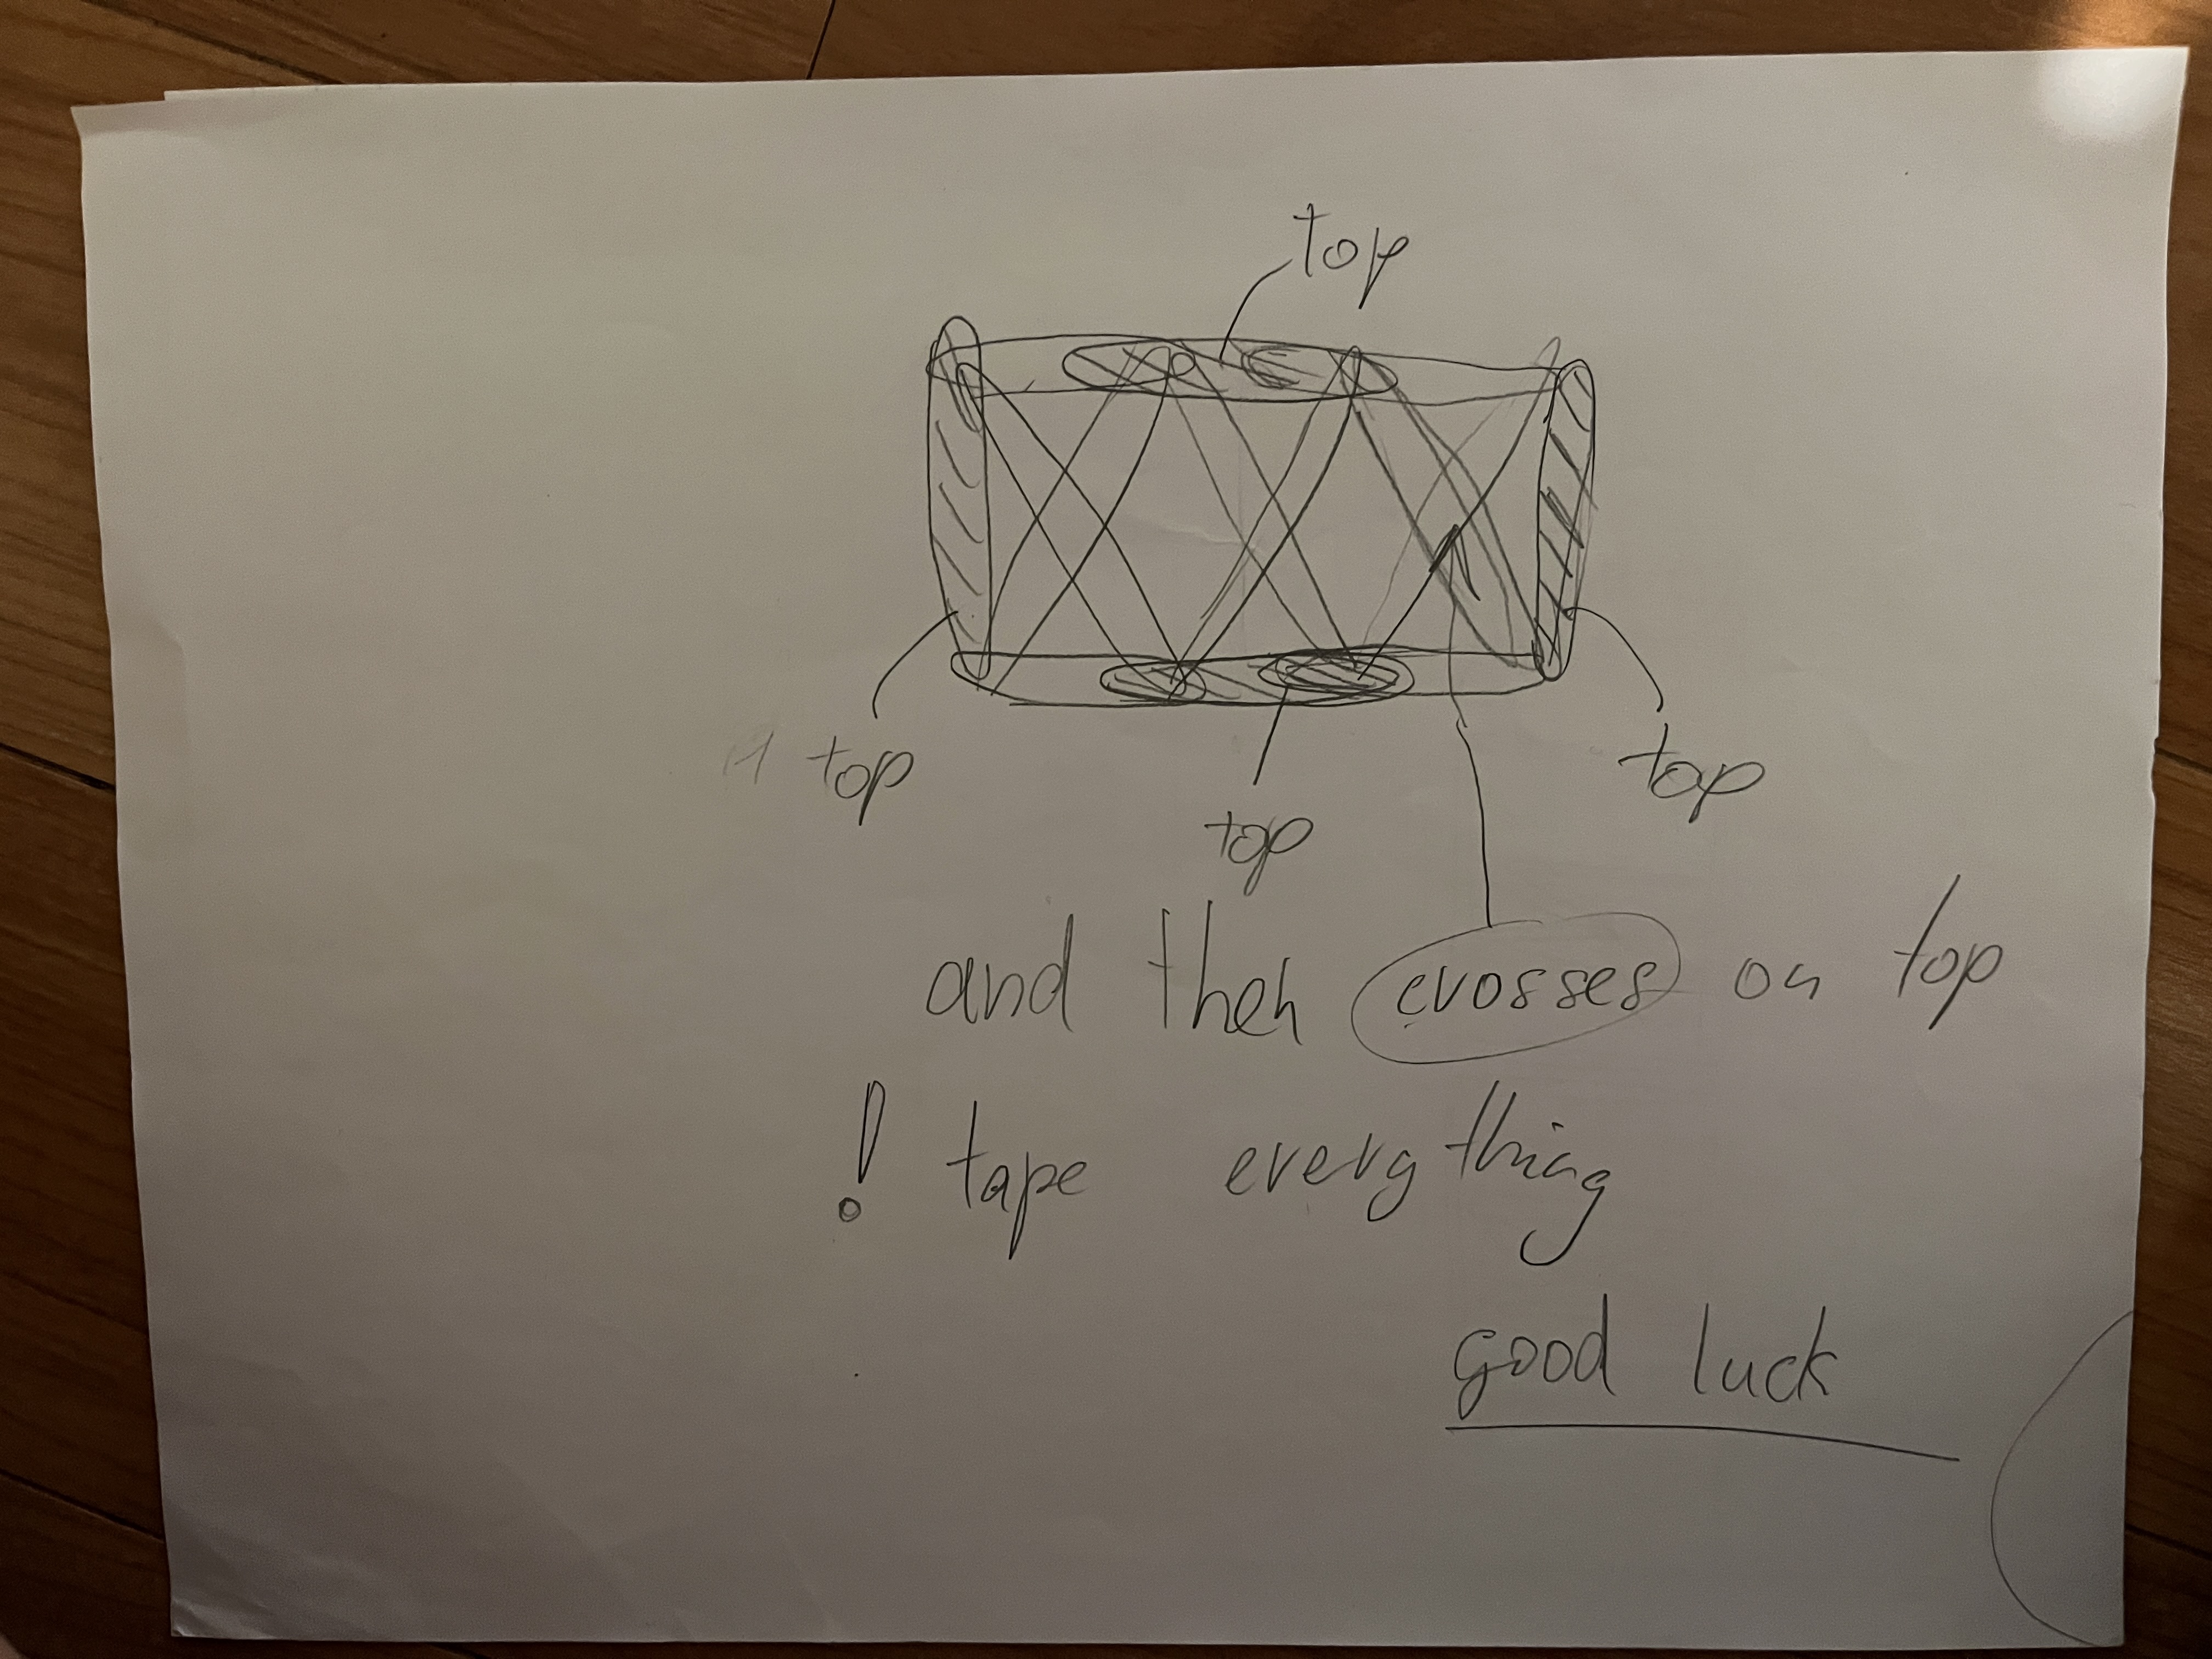 top
top
top
top
and then crosses on top
! tape everything
good luck